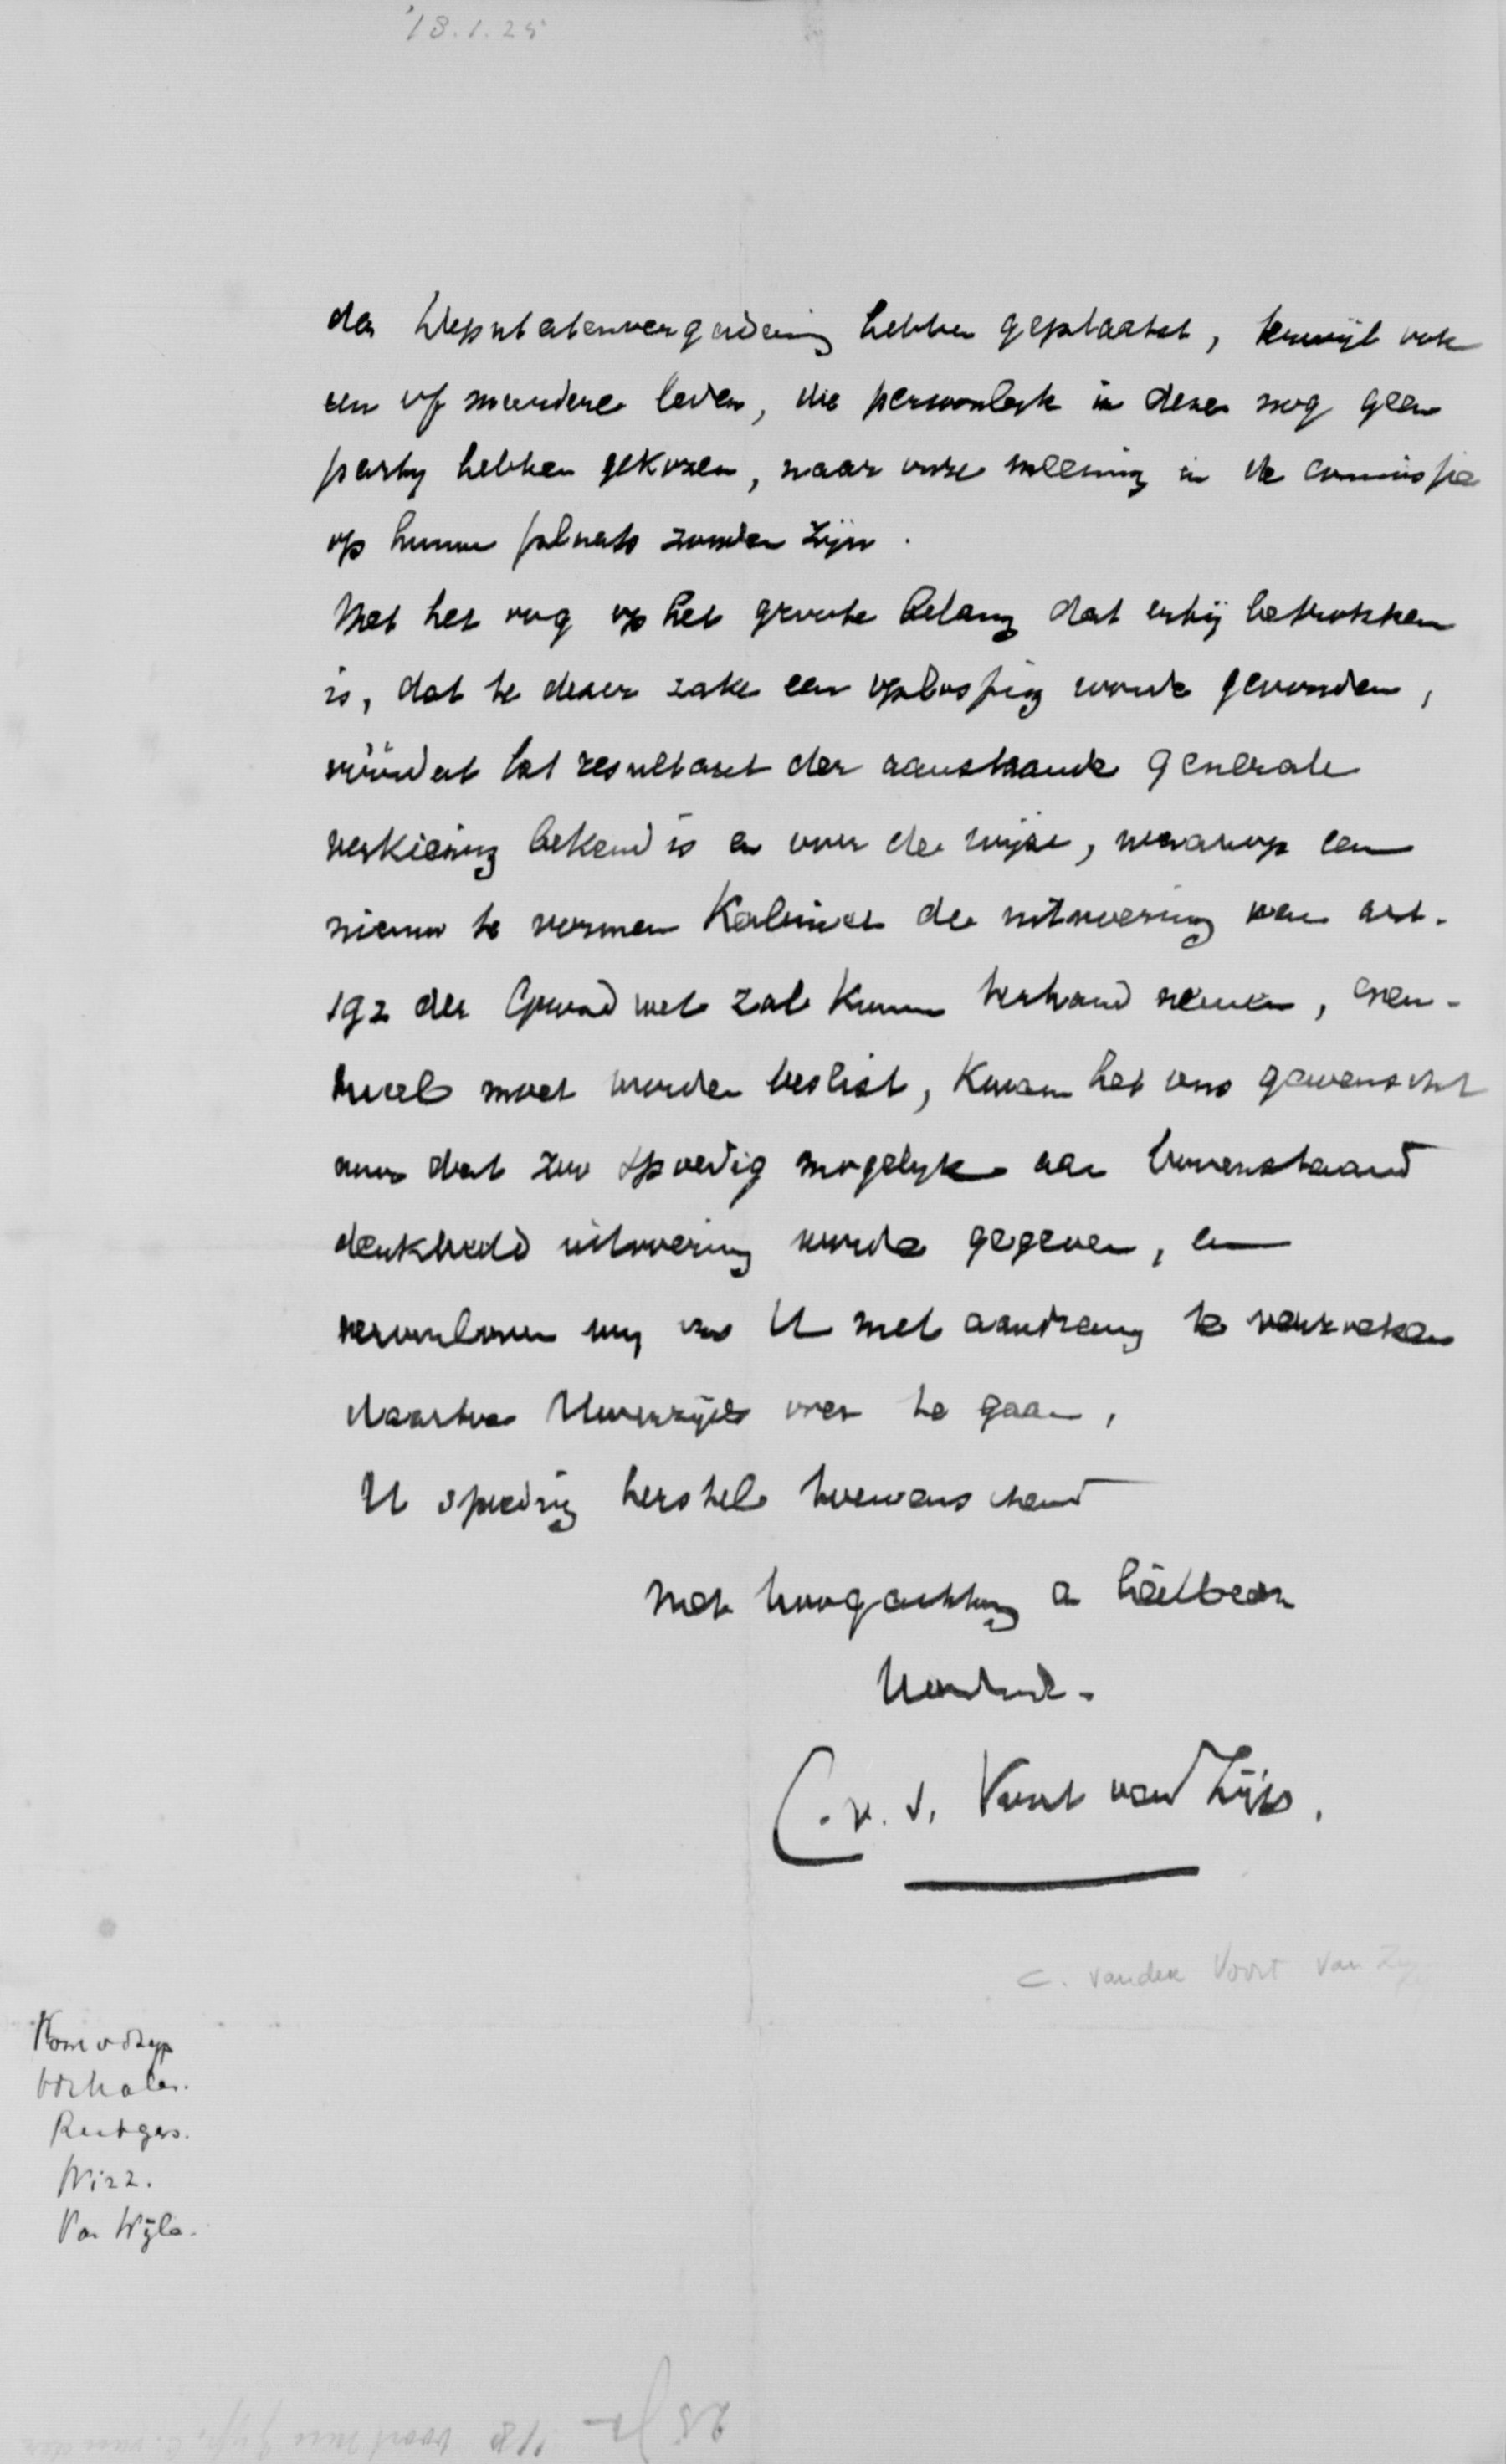 18.1.25
der Deputatenvergadering hebben geplaatst, terwijl ook
een of meerdere leden, die persoonlyk in dezen nog geen
party hebben gekozen, naar onze meening in de commissie
op hunne plaats zouden zijn.
Met het oog op het groote belang dat erbij betrokken
is, dat te dezer zake een oplossing worde gevonden,
vóórdat het resultaat der aanstaande generale
verkiezing bekend is en over de wijze, waarop een
nieuw te vormen Kabinet de uitvoering van art.
192 der Grondwet zal kunnen terhand nemen, even-
tueel moet worden beslist, kwam het ons gewenscht
voor dat zoo spoedig mogelyk aan bovenstaand
denkbeeld uitvoering worde gegeven, en
veroorloven wy ons U met aandrang te verzoeken
daartoe Uwerzijds over te gaan,
U spoedig herstel toewenschend
Met hoogachting en heilbede
C. v. d. Voort van Zijp.
C. vander Voort van Zijp
Voort v Zyp
Rutgers.
Van Wijk.
25